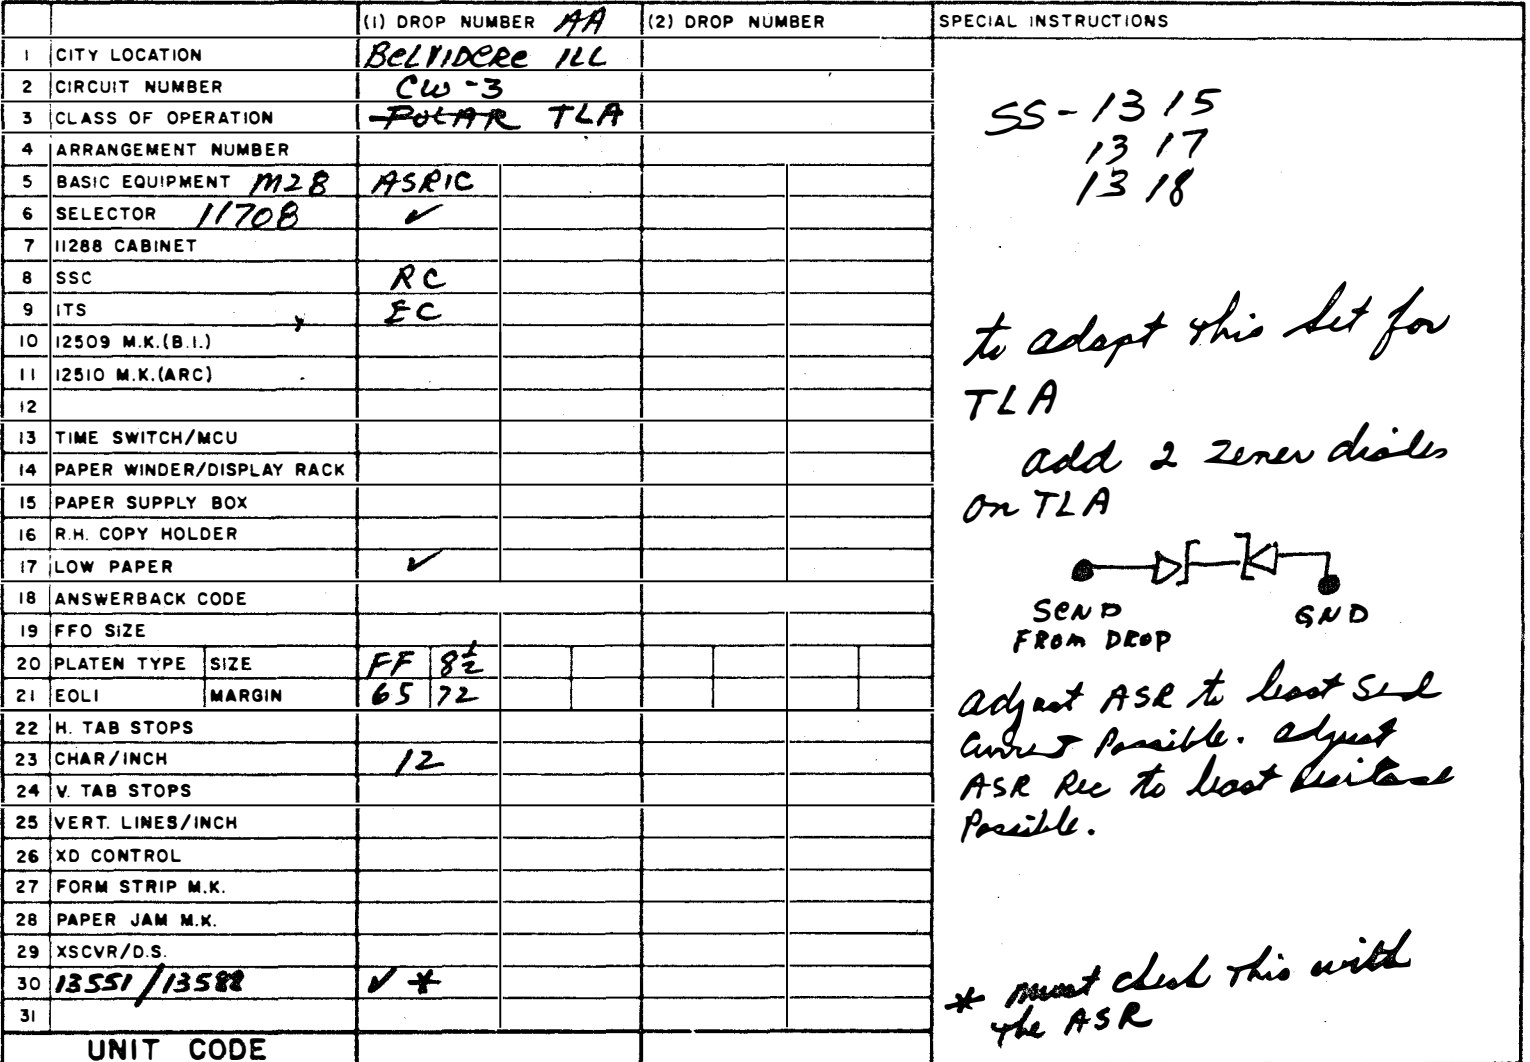 (1) DROP NUMBER AA (2) DROP NUMBER SPECIAL INSTRUCTIONS
1 CITY LOCATION BELVIDERE ILL
2 CIRCUIT NUMBER CW-3
3 CLASS OF OPERATION POLAR TLA
4 ARRANGEMENT NUMBER
5 BASIC EQUIPMENT M28 ASRIC
6 SELECTOR 11708 ✓
7 11288 CABINET
8 SSC RC
9 ITS EC
10 12509 M.K.(B.I.)
11 12510 M.K.(ARC)
12
13 TIME SWITCH/MCU
14 PAPER WINDER/DISPLAY RACK
15 PAPER SUPPLY BOX
16 R.H. COPY HOLDER
17 LOW PAPER ✓
18 ANSWERBACK CODE
19 FFO SIZE
20 PLATEN TYPE SIZE FF 8½
21 EOLI MARGIN 65 72
22 H. TAB STOPS
23 CHAR/INCH 12
24 V. TAB STOPS
25 VERT. LINES/INCH
26 XD CONTROL
27 FORM STRIP M.K.
28 PAPER JAM M.K.
29 XSCVR/D.S.
30 13551/13588 ✓ *
31
UNIT CODE
SS-1315
1317
1318
to adapt this set for
TLA
add 2 zener diodes
on TLA
SEND GND
FROM DROP
adjust ASR to least send
current Possible. adjust
ASR Rec to least
Possible.
* must check this with
the ASR